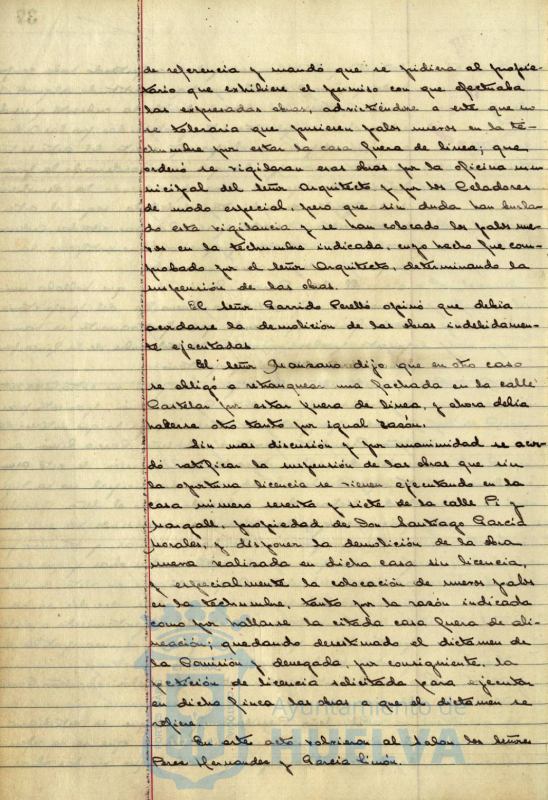 de referencia y mandó que se pidiera al propie-
tario que exhibiere el permiso con que efectuaba
las expresadas obras, advirtiéndose a este que no
se toleraria que pusiesen palos nuevos en la te-
chumbre por estar la casa fuera de linea; que
ordenó se vigilaran esas obras por la oficina mu-
nicipal del Señor Arquitecto y por los Celadores
de modo especial, pero que sin duda han burla-
do esta vigilancia y se han colocado los palos nue-
vos en la techumbre indicada, cuyo hecho fue com-
probado por el Señor Arquitecto, determinando la
suspensión de las obras.
El Señor Garrido Perelló opinó que debia
acordarse la demolición de las obras indebidamen-
te ejecutadas
El Señor Manzano dijo que en otro caso
se obligó a retranquear una fachada en la calle
Castelar por estar fuera de linea, y ahora debia
hacerse otro tanto por igual razón.
Sin mas discusión y por unanimidad se acor-
dó ratificar la suspensión de las obras que sin
la oportuna licencia se vienen ejecutando en la
casa número sesenta y siete de la calle Pi y
Margall, propiedad de Don Santiago García
Morales, y disponer la demolición de la obra
nueva realizada en dicha casa sin licencia,
y especialmente la colocación de nuevos palos
en la techumbre, tanto por la razón indicada
como por hallarse la citada casa fuera de ali-
neación; quedando desestimado el dictamen de
la Comisión y denegada, por consiguiente, la
petición de licencia solicitada para ejecutar
en dicha finca las obras a que el dictamen se
refiere.
En este acto volvieron al Salon los Señores
Perez Hernandez y García Limón.
Ayuntamiento de
HUELVA